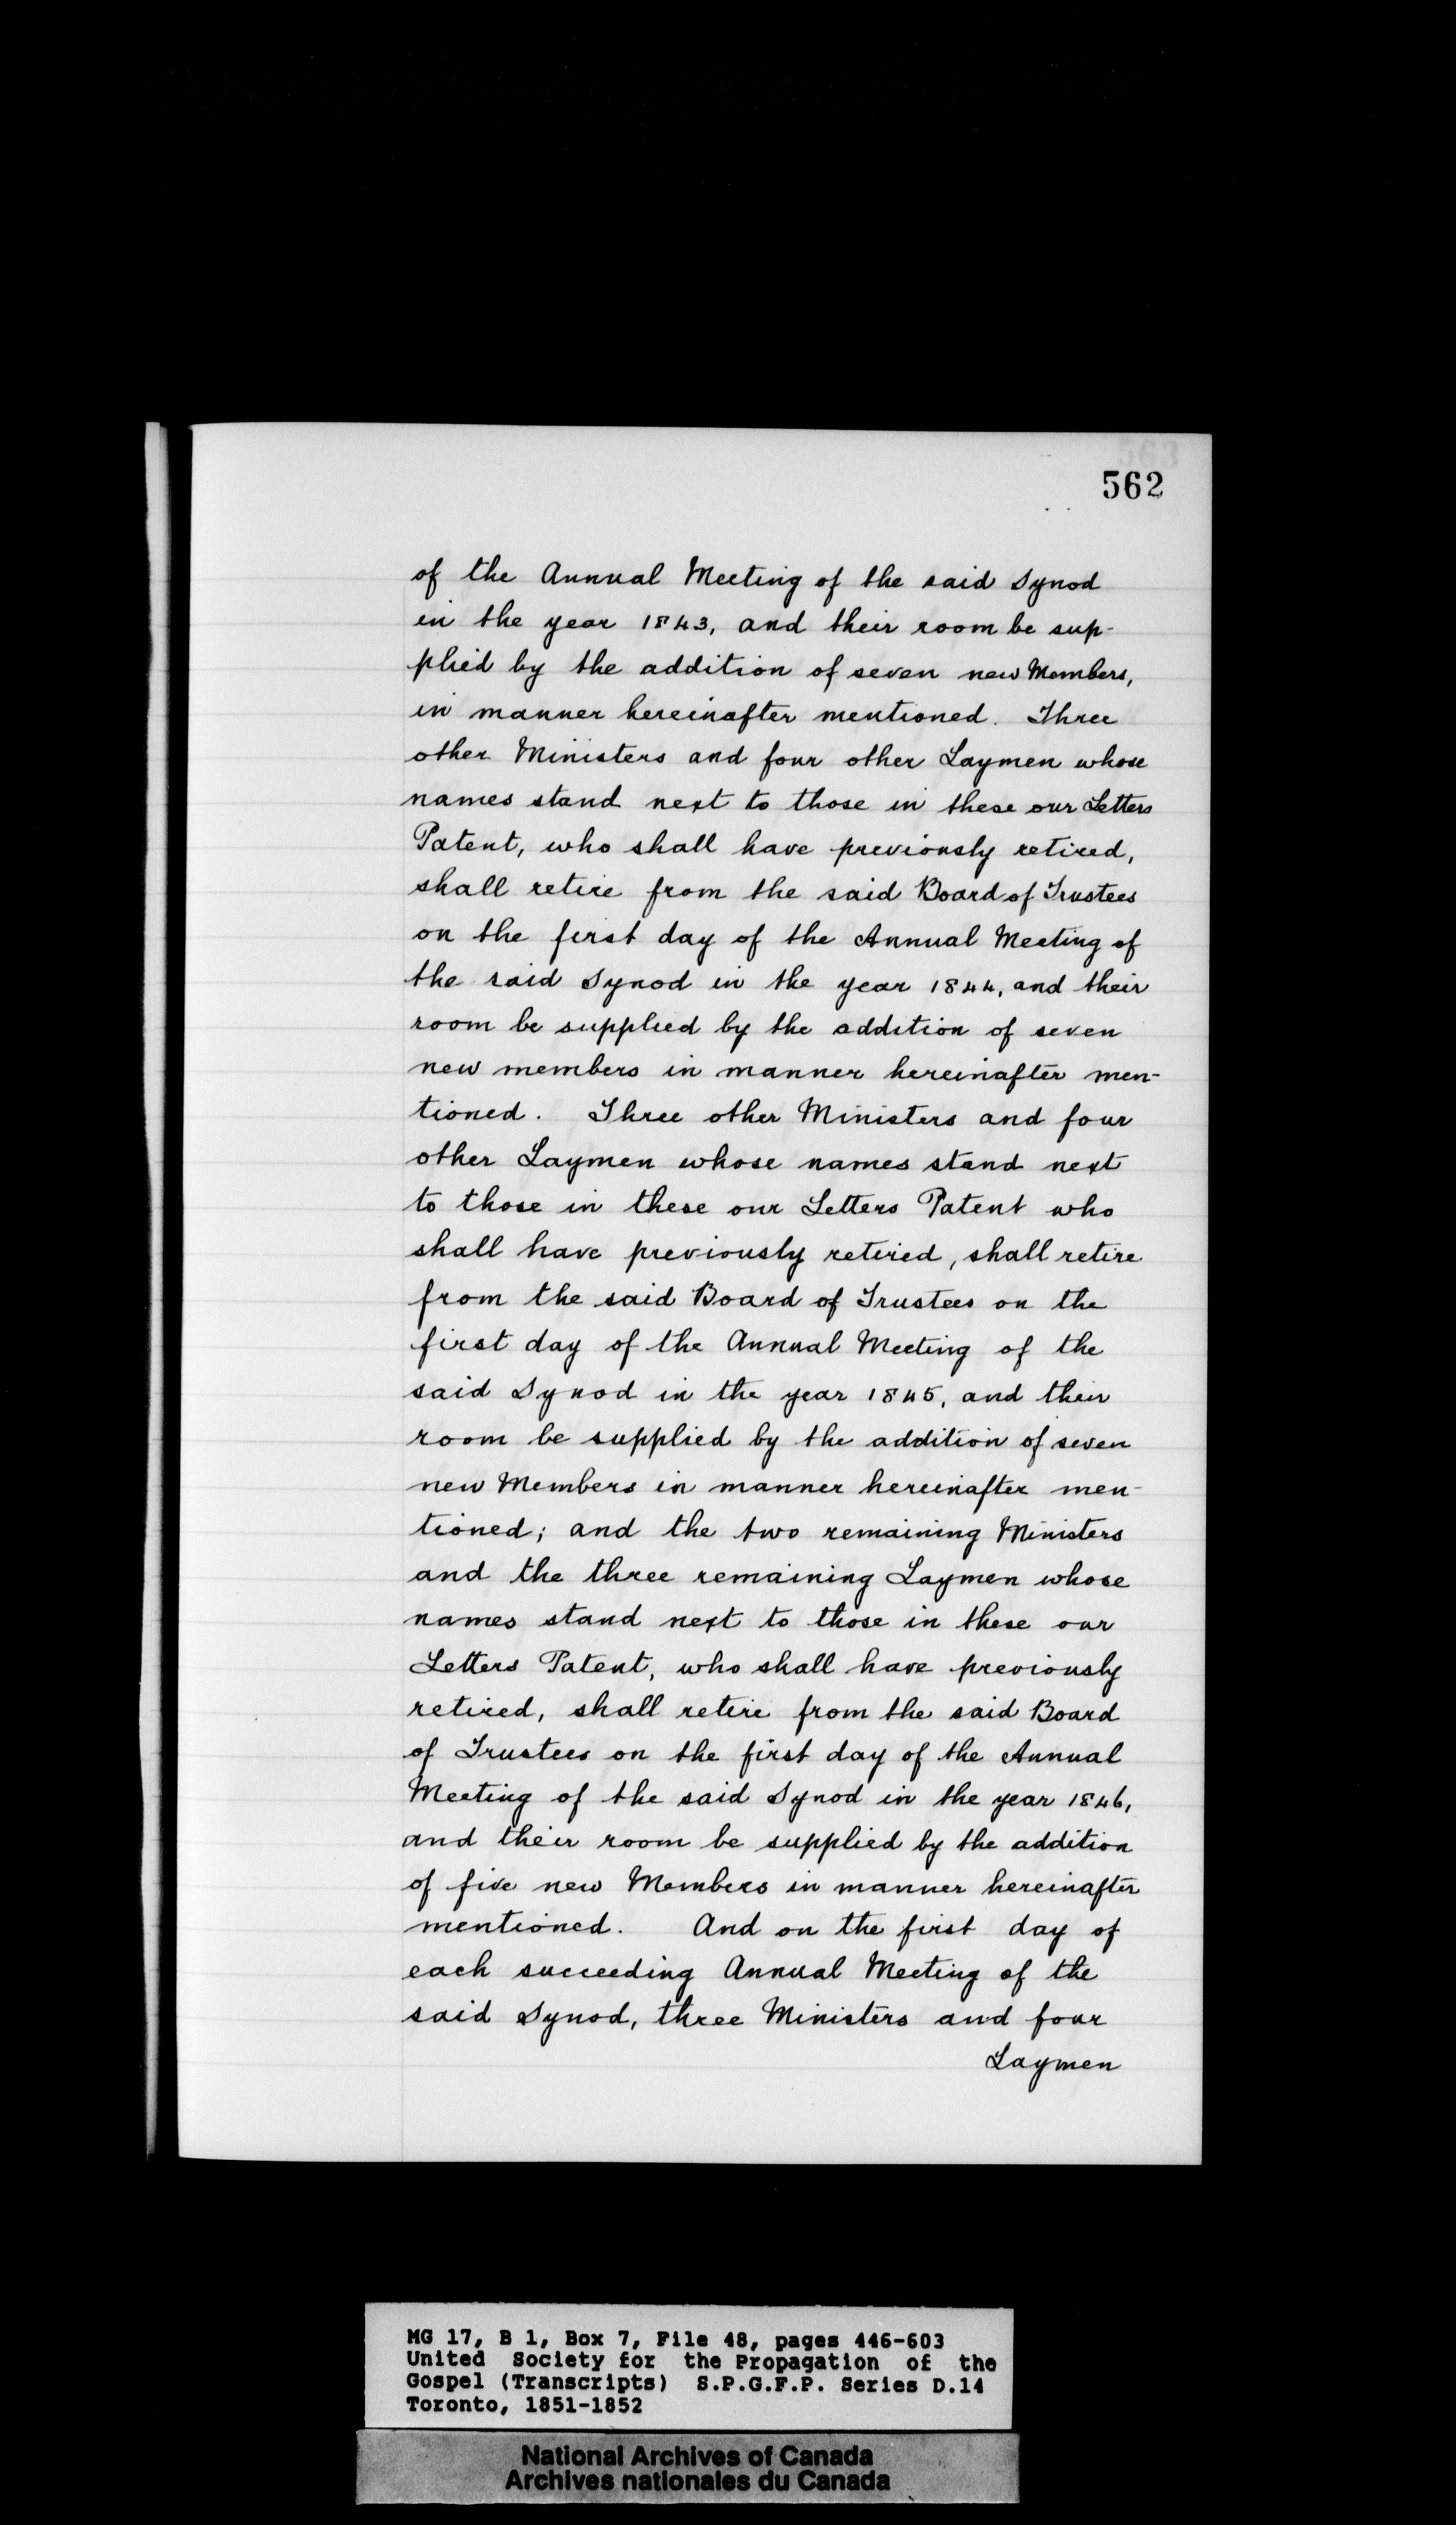 562
of the Annual Meeting of the said Synod
in the year 1843, and their room be sup-
plied by the addition of seven new Members,
in manner hereinafter mentioned. Three
other Ministers and four other Laymen whose
names stand next to those in these our Letters
Patent, who shall have previously retired,
shall retire from the said Board of Trustees
on the first day of the Annual Meeting of
the said Synod in the year 1844, and their
room be supplied by the addition of seven
new members in manner hereinafter men-
tioned. Three other Ministers and four
other Laymen whose names stand next
to those in these our Letters Patent who
shall have previously retired, shall retire
from the said Board of Trustees on the
first day of the Annual Meeting of the
said Synod in the year 1845, and their
room be supplied by the addition of seven
new Members in manner hereinafter men-
tioned; and the two remaining Ministers
and the three remaining Laymen whose
names stand next to those in these our
Letters Patent, who shall have previously
retired, shall retire from the said Board
of Trustees on the first day of the Annual
Meeting of the said Synod in the year 1846,
and their room be supplied by the addition
of five new Members in manner hereinafter
mentioned. And on the first day of
each succeeding Annual Meeting of the
said Synod, three Ministers and four
Laymen
MG 17, B 1, Box 7, File 48, pages 446-603
United Society for the Propagation of the
Gospel (Transcripts) S.P.G.F.P. Series D.14
Toronto, 1851-1852
National Archives of Canada
Archives nationales du Canada